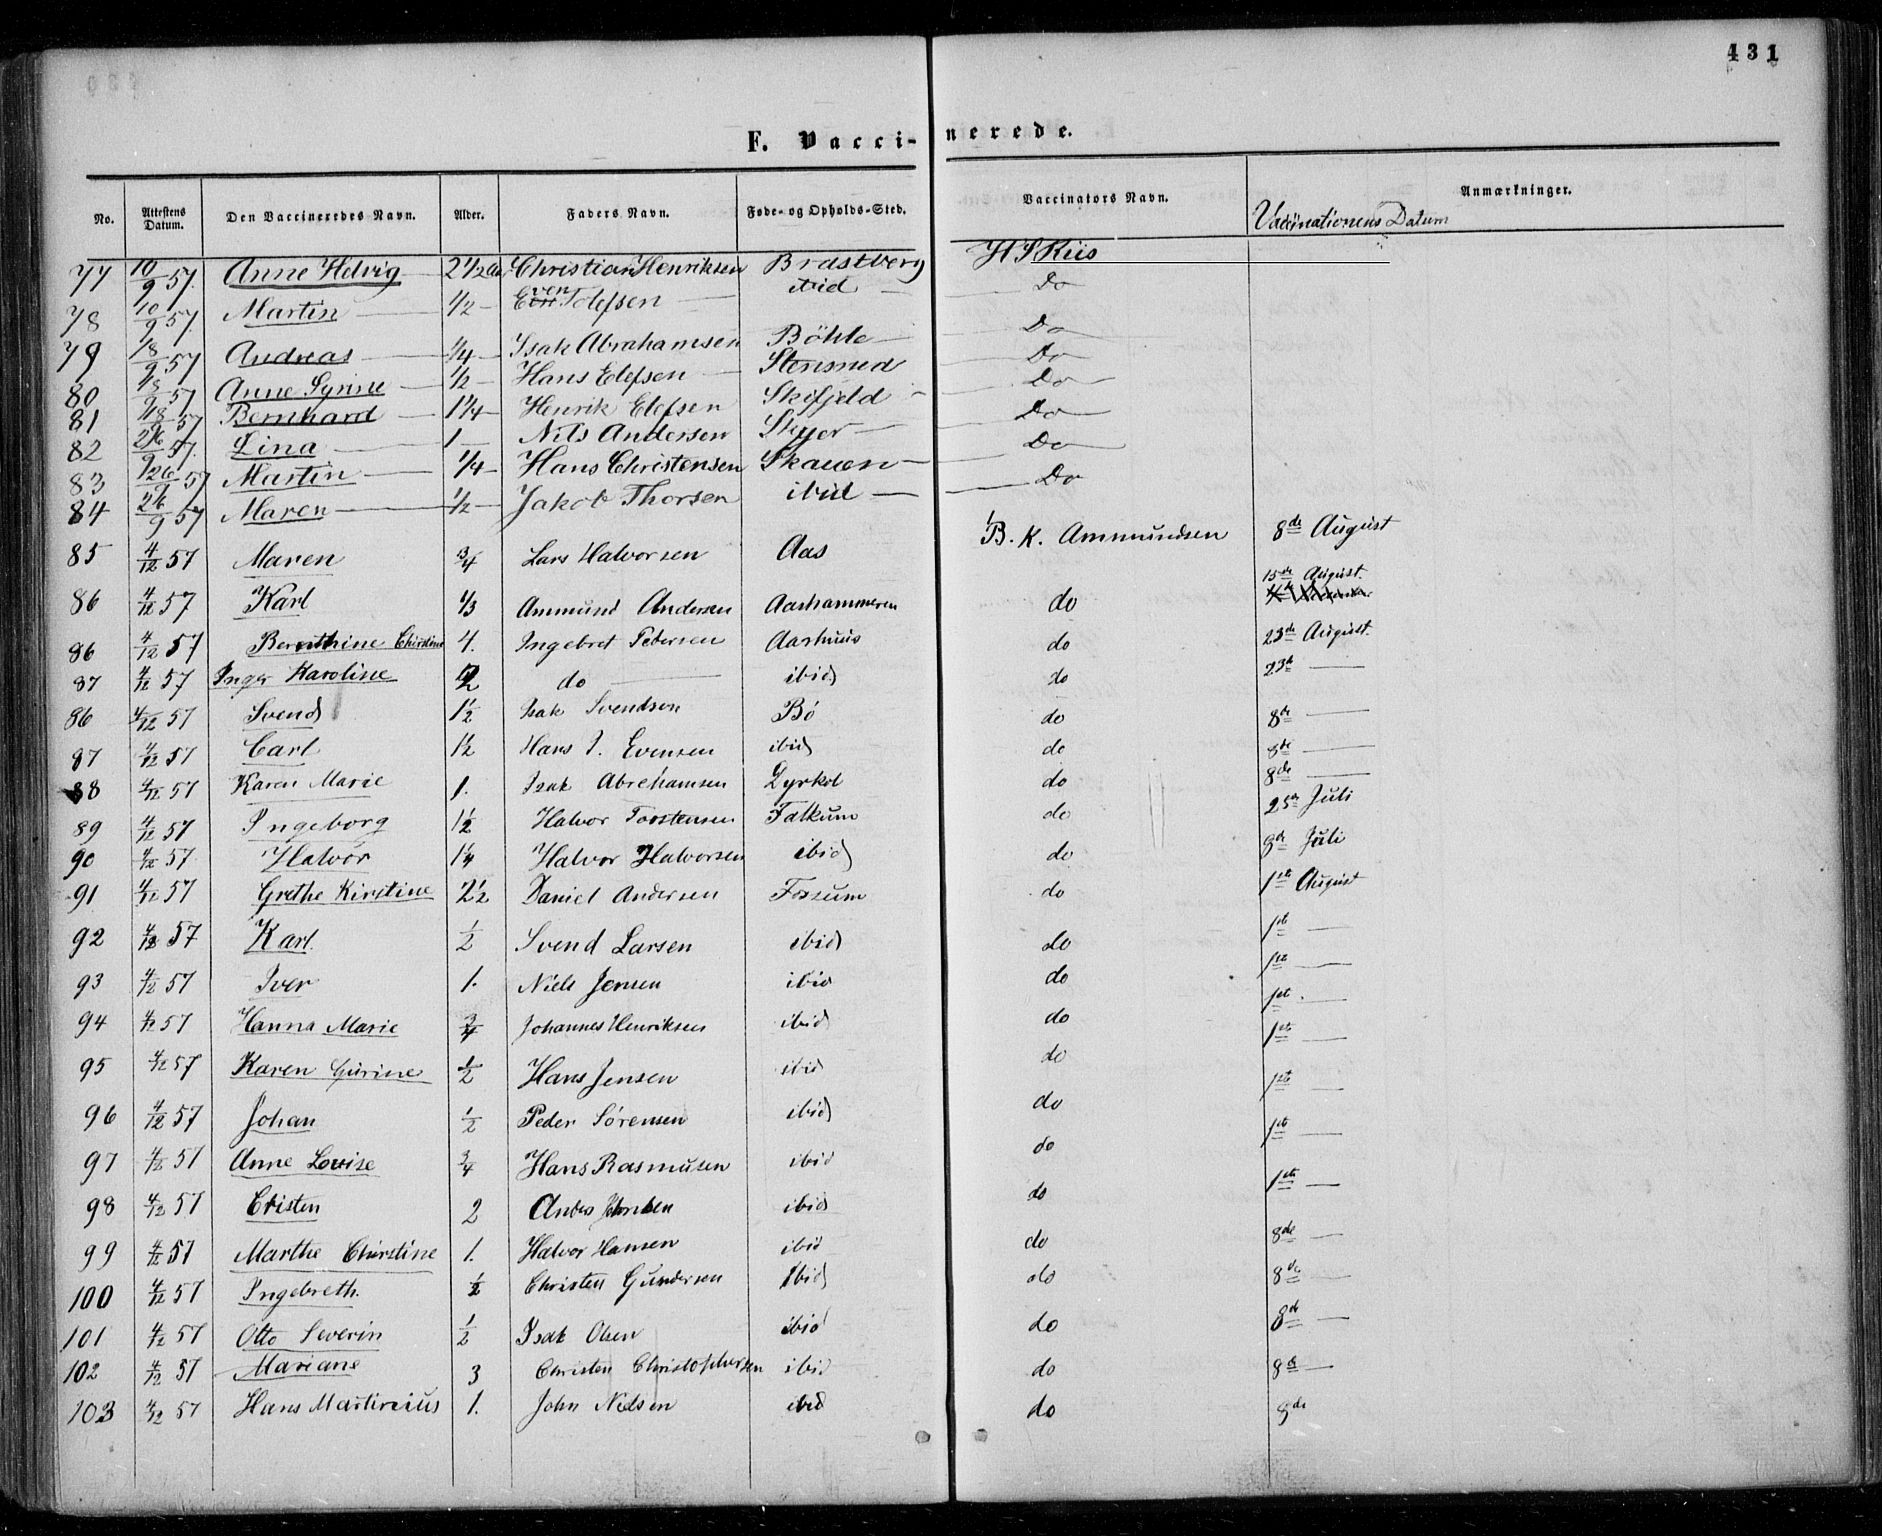 431
F. Vaccinerede.
No. | Attestens Datum. | Den Vaccineredes Navn. | Alder. | Faders Navn. | Føde- og Opholds-Sted. | Vaccinators Navn. | Vaccinationens Datum | Anmærkninger.
77 | 10/9 57. | Anne Helvig | 2 1/2 | Christian Henriksen | Brastberg | H S Riis
78 | 10/9 57 | Martin | 1/2 | Even Tolefsen | ibid | Do
79 | 18/9 57 | Andreas | 1/4 | Isak Abrahamsen | Böhle | Do
80 | 18/9 57 | Anne Syrine | 1/2 | Hans Elefsen | Stensrud | Do
81 | 18/9 57 | Bernhard | 1 1/4 | Henrik Elefsen | Skifjeld | Do
82 | 26/9 57. | Lina | 1 | Nils Andersen | Skyer | Do
83 | 26/9 57 | Martin | 1/4 | Hans Christensen | Skauen | Do
84 | 26/9 57 | Maren | 1/2 | Jakob Thorsen | ibid | Do
85 | 4/12 57 | Maren | 3/4 | Lars Halvorsen | Aas | B. K. Ammundsen | 8de August
86 | 4/12 57 | Karl | 1/3 | Ammund Andersen | Aashammeren | do | 15de August.
86 | 4/12 57 | Bernthine Chirstine | 4. | Ingebret Pedersen | Aashuus | do | 23de August.
87 | 4/12 57 | Inger Karoline | 2 | do | ibid | do | 23de —
86 | 4/12 57 | Svend | 1 1/2 | Isak Svendsen | Bö | do | 8de —
87 | 4/12 57 | Carl | 1 1/2 | Hans J. Evensen | ibid | do | 8de —
88 | 4/12 57 | Karen Marie | 1. | Isak Abrehamsen | Dyrkol | do | 8de —
89 | 4/12 57 | Ingeborg | 1 1/2 | Halvor Torstensen | Falkum | do | 25de Juli
90 | 4/12 57 | Halvor | 1 1/4 | Halvor Halvorsen | ibid | do | 8de Juli
91 | 4/12 57 | Grethe Kirstine | 2 1/2 | Daniel Andersen | Fossum | do | 1ste August
92 | 4/12 57 | Karl. | 1/2 | Svend Larsen | ibid | do | 1ste —
93 | 4/12 57 | Iver | 1. | Niels Jensen | ibid | do | 1ste —
94 | 4/12 57 | Hanna Marie | 3/4 | Johannes Henriksen | ibid | do | 1ste —
95 | 4/12 57 | Karen Gurine | 1/2 | Hans Jensen | ibid | do | 1ste —
96 | 4/12 57 | Johan | 1/2 | Peder Sörensen | ibid | do | 1ste —
97 | 4/12 57 | Anne Lovise | 3/4 | Hans Rasmusen | ibid | do | 1ste —
98 | 4/12 57 | Cristen | 2 | Anders | ibid | do | 1ste —
99 | 4/12 57 | Marthe Chirstine | 1. | Halvor Hansen | ibid | do | 8de —
100 | 4/12 57 | Ingebreth. | 1/2 | Christen Gundersen | Ibid | do | 8de —
101 | 4/12 57 | Otto Severin | 1/2 | Isak Olsen | ibid | do | 8de —
102 | 4/12 57 | Mariane | 3 | Christen Christophersen | ibid | do | 8de —
103 | 4/12 57 | Hans Martinius | 1. | John Nielsen | ibid | do | 8de